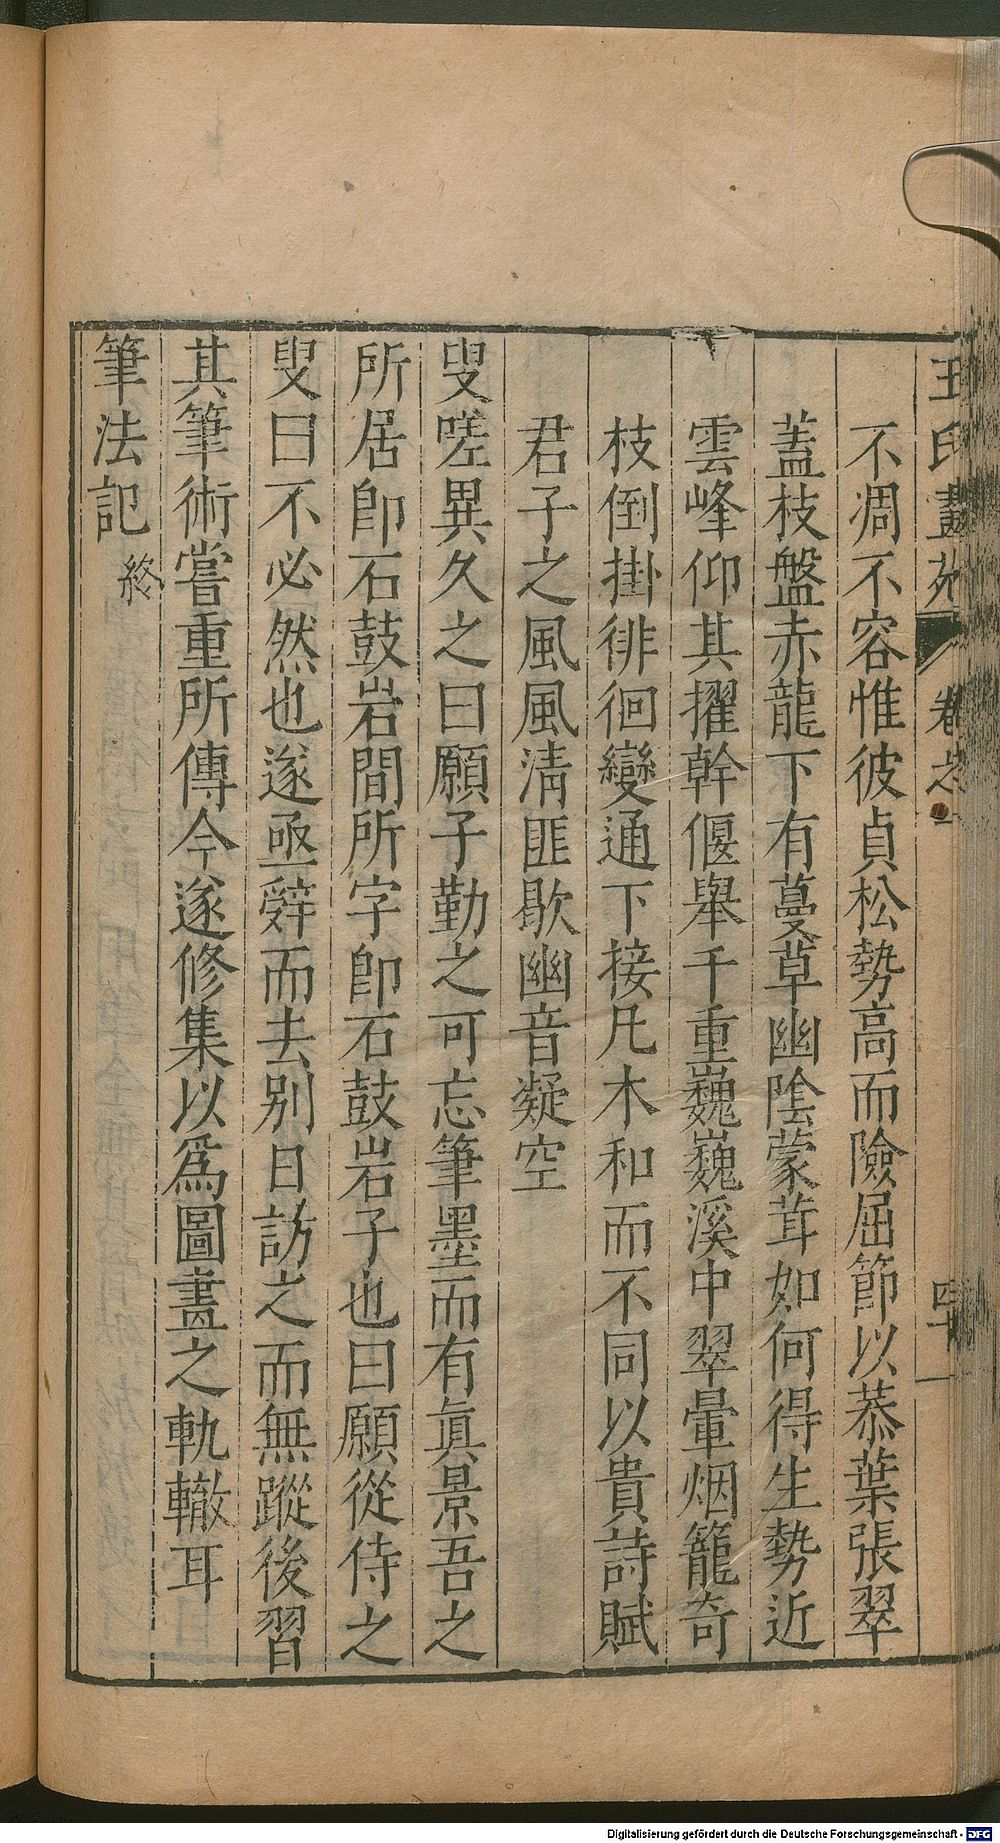 王氏畫苑 卷之一 四十
不凋不容惟彼貞松勢高而險屈節以恭葉張翠
蓋枝盤赤龍下有蔓草幽陰蒙茸如何得生勢近
雲峰仰其擢幹偃舉千重巍巍溪中翠暈烟籠奇
枝倒掛徘徊變通下接凡木和而不同以貴詩賦
君子之風風清匪歇幽音凝空
叟嗟異久之曰願子勤之可忘筆墨而有真景吾之
所居即石鼓岩間所字即石鼓岩子也曰願從侍之
叟曰不必然也遂亟辤而去别日訪之而無蹤後習
其筆術嘗重所傳今遂修集以爲圖畫之軌轍耳
筆法記 終
Digitalisierung gefördert durch die Deutsche Forschungsgemeinschaft - DFG